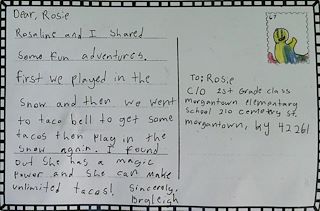 Dear, Rosie
Rosaline and I shared
some fun adventures.
first we played in the
snow and then we went
to taco bell to get some
tacos then play in the
snow again. I found
out she has a magic
power and she can make
unlimited tacos! sincerely,
Braleigh
67
To: Rosie
C/O 1st Grade class
morgantown elementary
School 210 Cemetery St.
morgantown, ky 42261